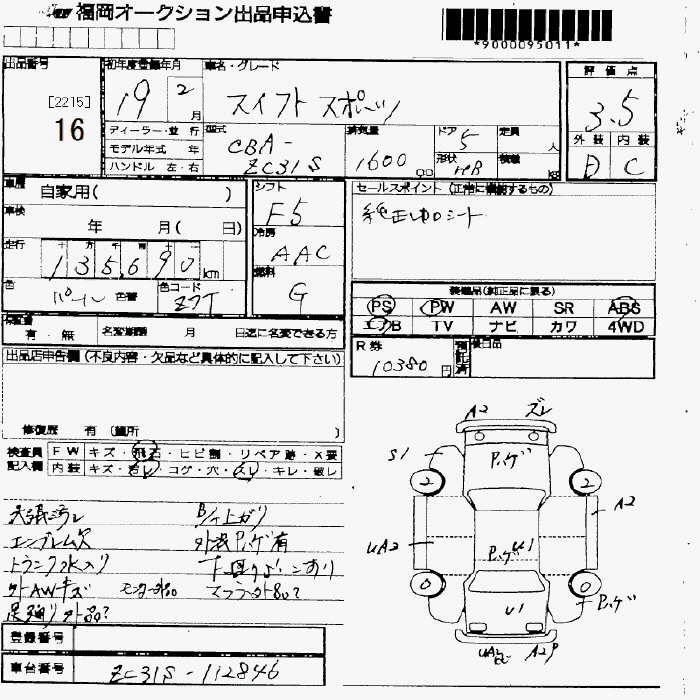 福岡オークション出品申込書
*9000095011*
出品番号
[2215]
16
初年度登録年月
19 2 月
車名・グレード
スイフト スポーツ
評価点
3.5
外装 内装
D C
ディーラー・並行
モデル年式 年
ハンドル 左・右
型式
CBA-
ZC31S
排気量
1600 CC
ドア
5
形状
HB
定員 人
積載 KG
車歴
自家用( )
車検
年 月( 日)
走行
十 万 千 百 十
135,690 km
色
パール 色替
色コード
Z7T
シフト
F5
冷房
AAC
燃料
G
セールスポイント (正常に機能するもの)
純正レカロシート
装備品(純正品に限る)
PS PW AW SR ABS
エアB TV ナビ カワ 4WD
保証書
有・無
名変期限 月 日迄に名変できる方
R券
10380 円
預託済
後日品
出品店申告欄 (不良内容・欠品など具体的に記入して下さい)
修復歴 有 (箇所 )
検査員
記入欄
FW キズ・飛石・ヒビ割・リペア跡・X要
内装 キズ・汚レ・コゲ・穴・スレ・キレ・破レ
天張汚レ
B/下上ガリ
エンブレム欠
外装Pハゲ有
トランク水入り
下廻りサビこあり
外AWキズ
マフラー外品?
足廻り外品?
A2 ズレ
Pハゲ
S1
2 2
A2
UA2
Pハゲ U1
0 0
Pハゲ
U1
A2P
登録番号
車台番号
ZC31S-112846